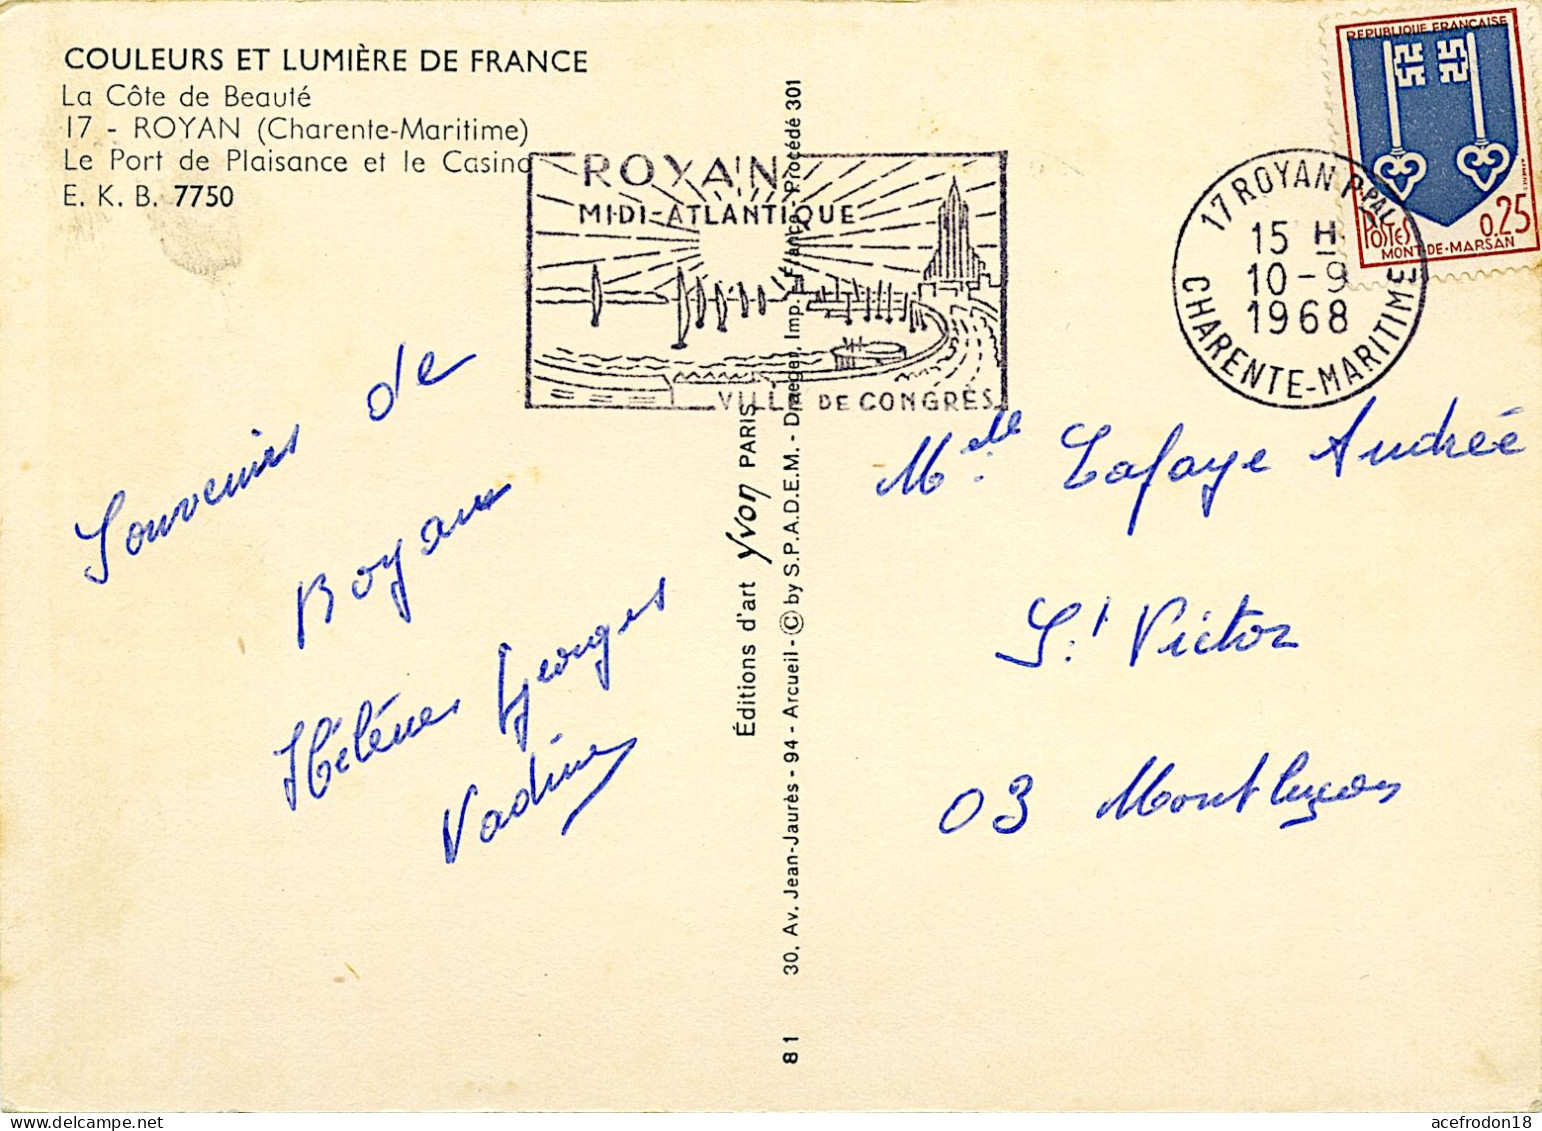 COULEURS ET LUMIÈRE DE FRANCE
La Côte de Beauté
17 - ROYAN (Charente-Maritime)
Le Port de Plaisance et le Casino
E. K. B. 7750
ROYAN
MIDI-ATLANTIQUE
VILLE DE CONGRÈS
17 ROYAN P.PAL
15 H
10-9
1968
CHARENTE-MARITIME
REPUBLIQUE FRANÇAISE
POSTES
0,25
MONT-DE-MARSAN
Souvenirs de
Royan
Hélène Georges
Nadine
Éditions d'art yvon PARIS
81 30, Av. Jean-Jaurès - 94 - Arcueil - © by S.P.A.D.E.M. - Draeger, Imp. France - Procédé 301
Melle Lafaye Andrée
St Victor
03 Montluçon
acefrodon18